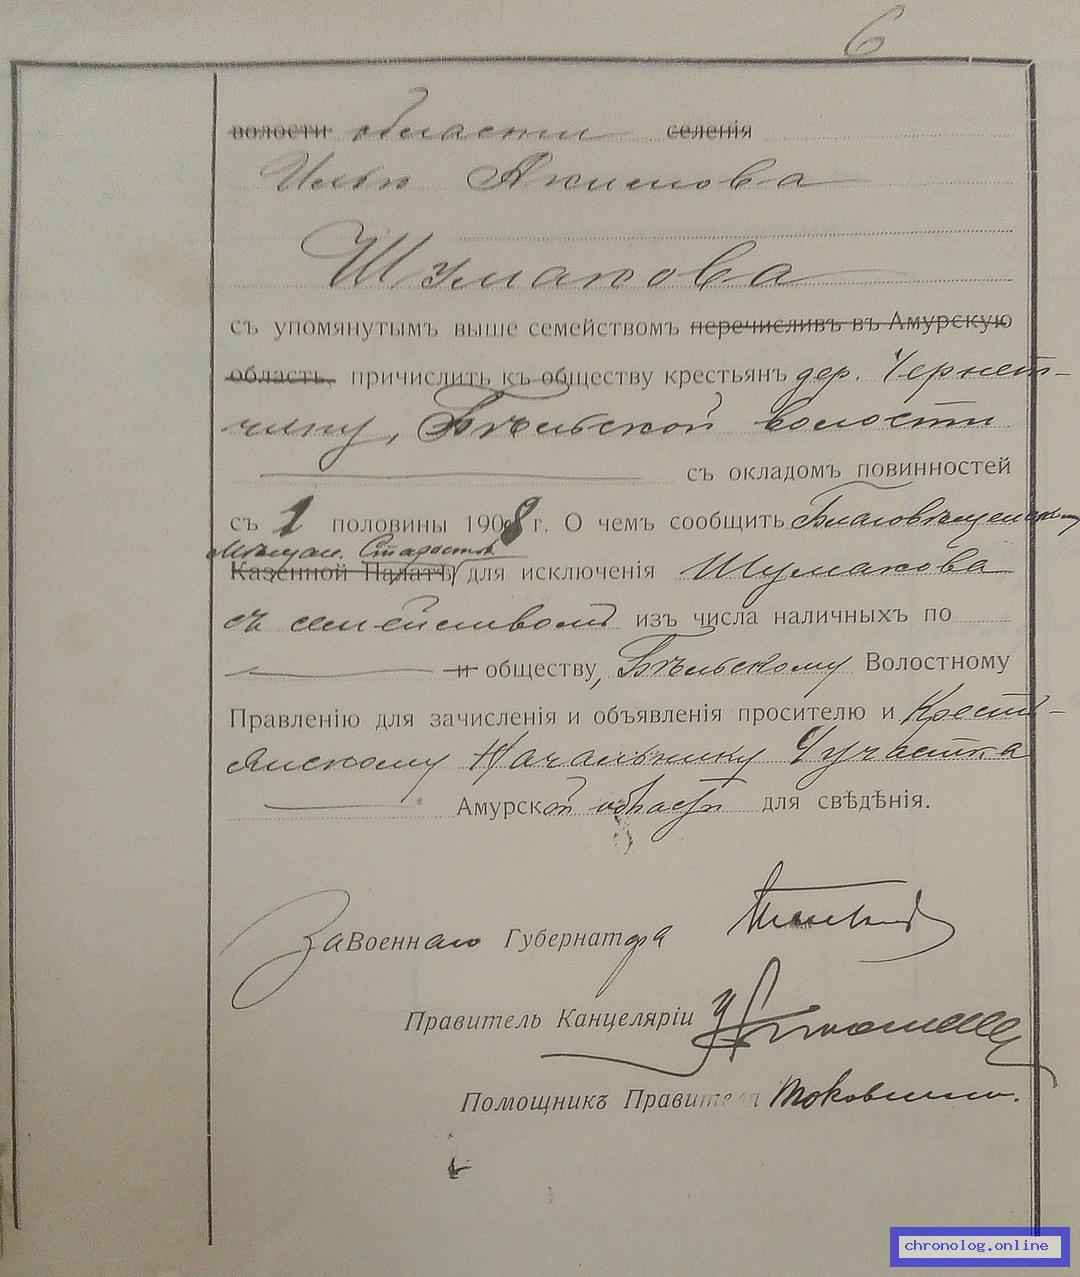 6
волости области селенія
Илью Акимова
Шумакова
съ упомянутымъ выше семействомъ перечисливъ въ Амурскую
область, причислить къ обществу крестьянъ дер. Чернет-
чину, Бѣльской волости
съ окладомъ повинностей
съ 1 половины 1908 г. О чемъ сообщить Благовѣщенскому
Мѣщан. Старостѣ
Казенной Палатѣ для исключенія Шумакова
съ семействомъ изъ числа наличныхъ по
и обществу, Бѣльскому Волостному
Правленію для зачисленія и объявленія просителю и Кресть-
янскому Начальнику 4 участка
Амурской области для свѣдѣнія.
За Военнаго Губернатора
Правитель Канцеляріи
Помощникъ Правителя
chronolog.online